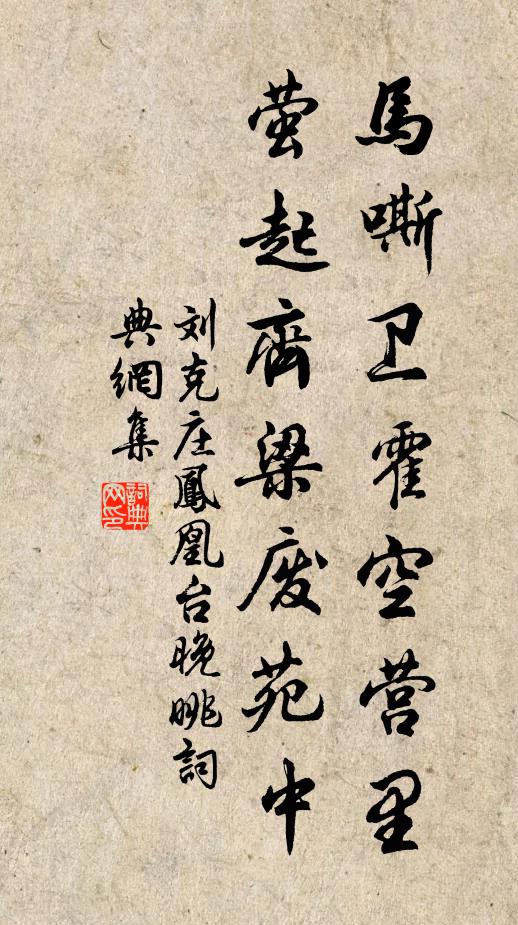 馬嘶卫霍空营里
萤起齊梁废苑中
刘克庄鳳凰台晚眺詞
典網集
詞典
网印